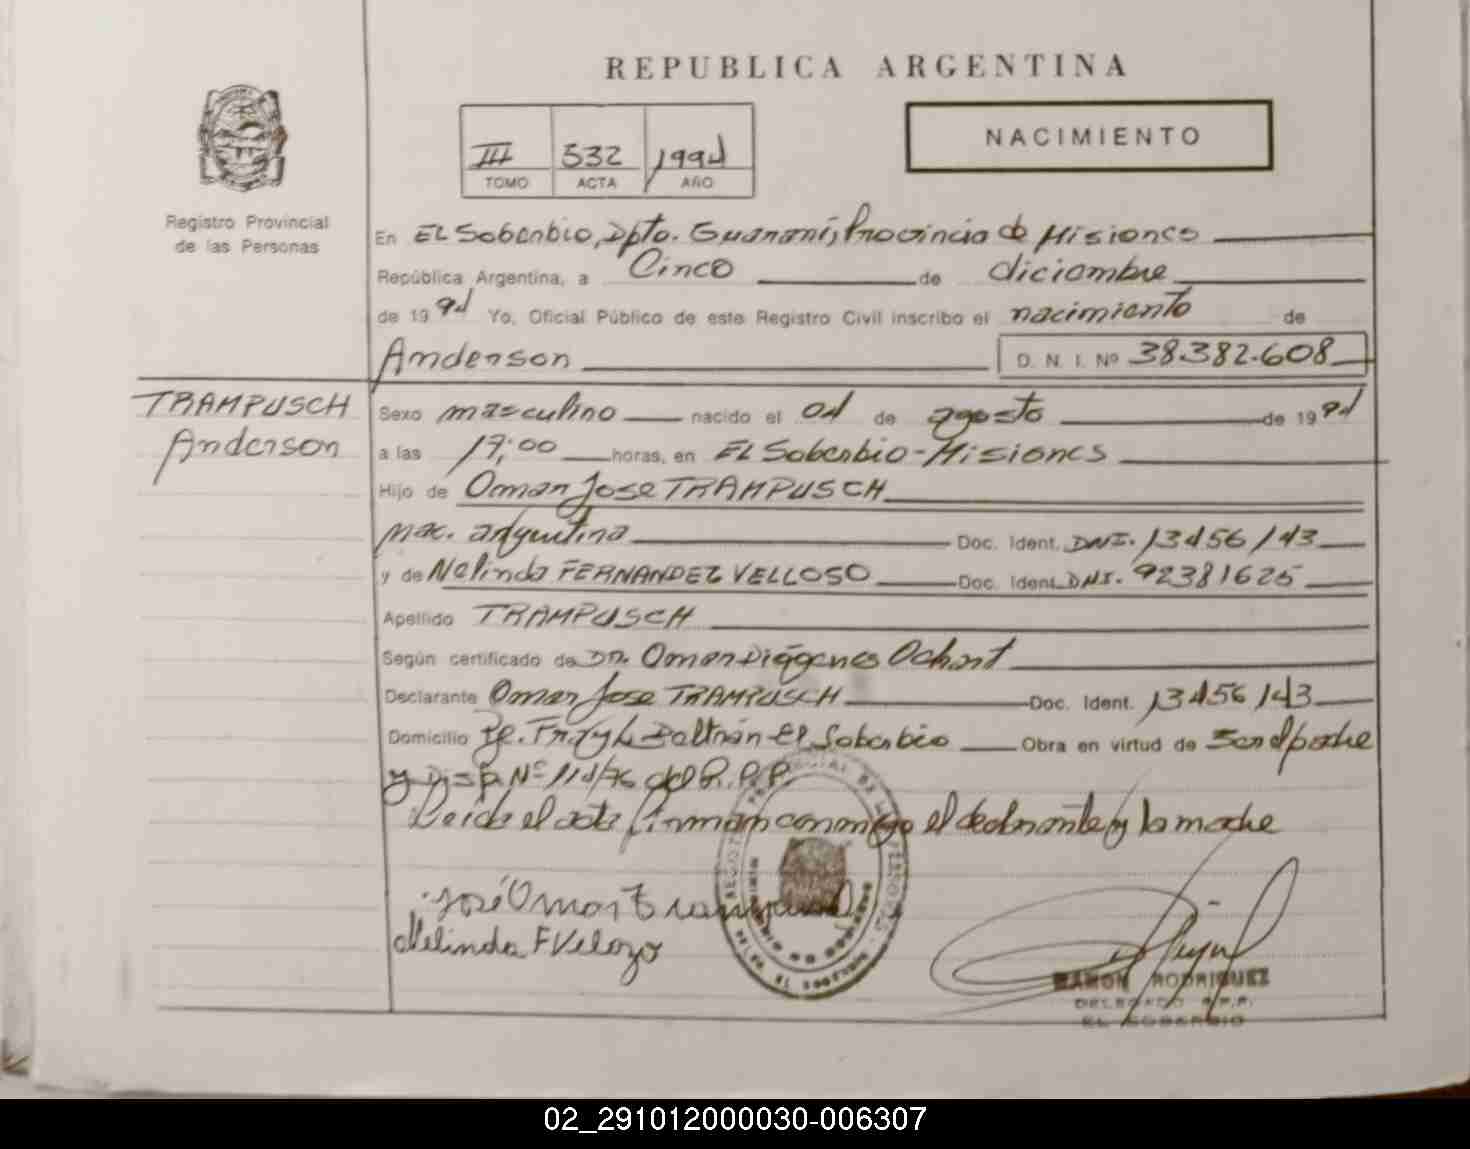 REPUBLICA ARGENTINA
NACIMIENTO
III 532 1994
TOMO ACTA AÑO
Registro Provincial
de las Personas
En EL Soberbio, Dpto. Guaraní, Provincia de Misiones
República Argentina, a Cinco de diciembre
de 19 94 Yo, Oficial Público de este Registro Civil inscribo el nacimiento de
Anderson D. N. I. Nº 38.382.608
TRAMPUSCH
Anderson
Sexo masculino nacido el 04 de agosto de 19 94
a las 17:00 horas, en EL Soberbio - Misiones
Hijo de Omar Jose TRAMPUSCH
nac. argentina Doc. Ident. DNI. 13456143
y de Nelinda FERNANDEZ VELLOSO Doc. Ident. DNI. 92381625
Apellido TRAMPUSCH
Según certificado de Dr. Omar Diógenes Ochart
Declarante Omar Jose TRAMPUSCH Doc. Ident. 13456143
Domicilio Fray L. Beltrán - El Soberbio Obra en virtud de ser el padre
y Disp. Nº 114/76 del R.P.P.
Leída el acta firman conmigo el declarante y la madre
José Omar Trampusch
Nelinda F Velozo
RAMON RODRIGUEZ
DELEGADO R.P.P.
EL SOBERBIO
02_291012000030-006307